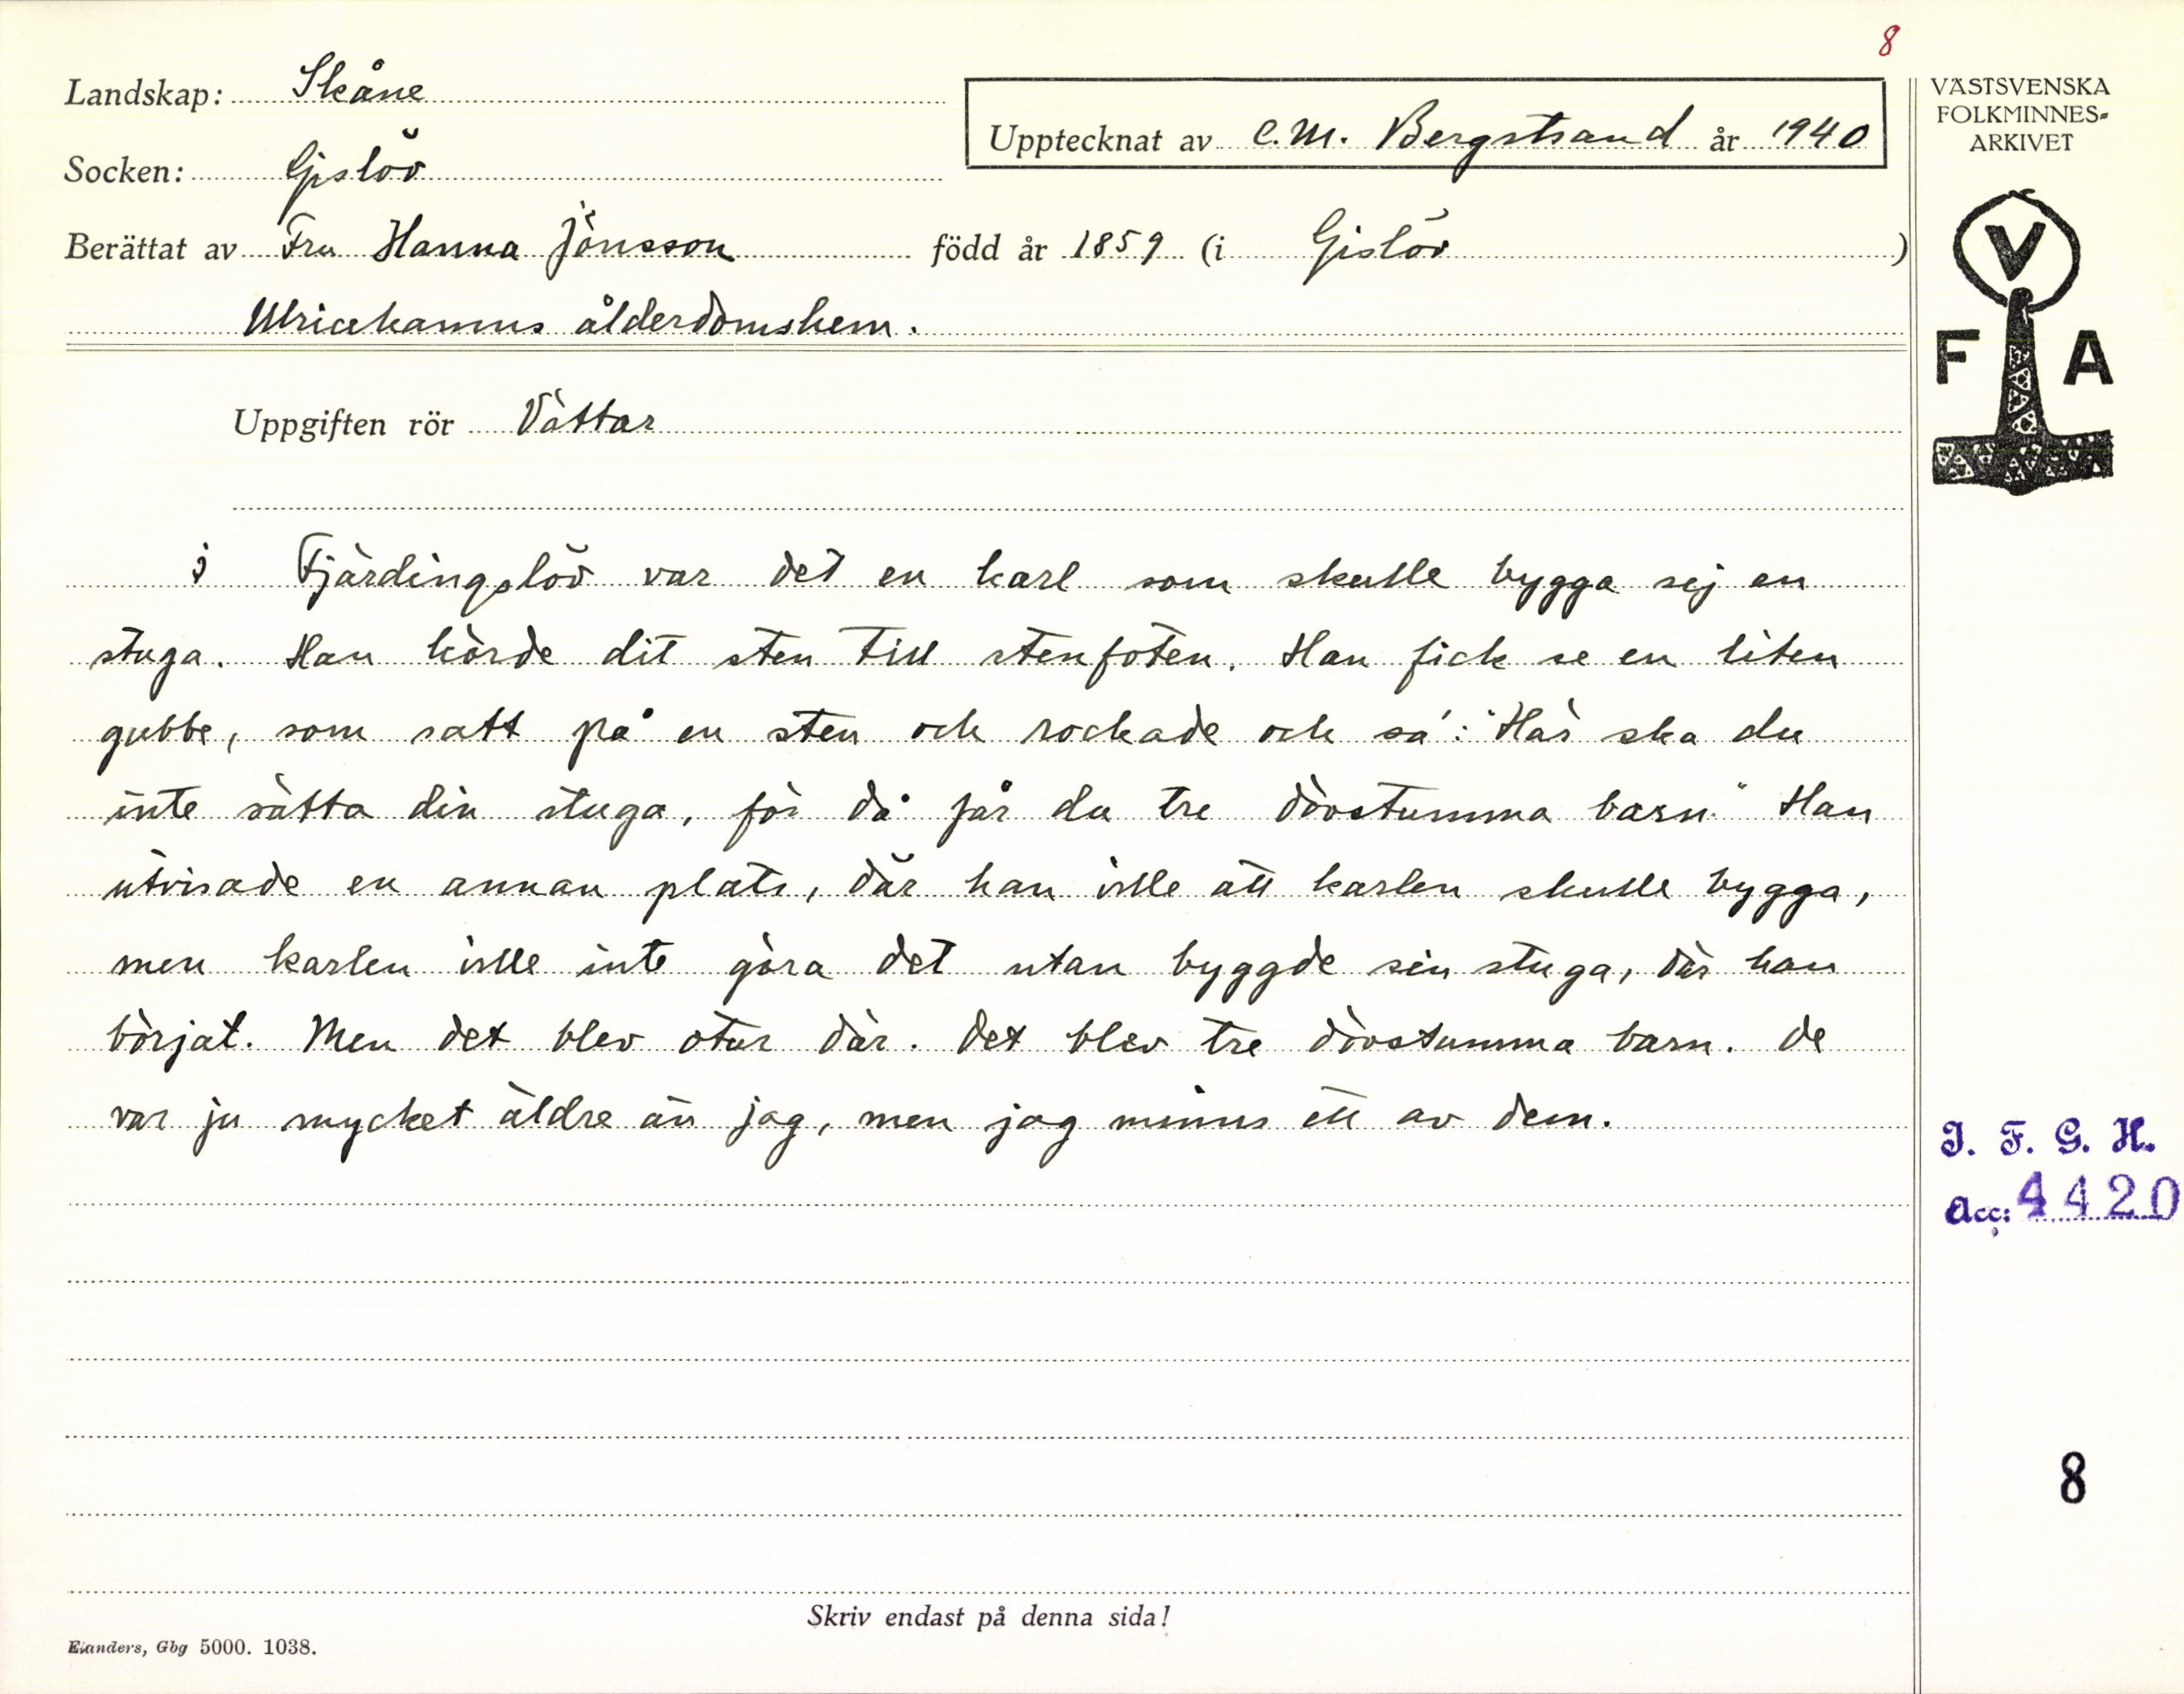 8
Landskap: Skåne
Socken: Gislöv
Upptecknat av C.M. Bergstrand år 1940
Berättat av Fru Hanna Jönsson född år 1859 (i Gislöv)
Ulricehamns ålderdomshem.
Uppgiften rör Vättar
I Fjärdingslöv var det en karl som skulle bygga sej en
stuga. Han körde dit sten till stenfoten. Han fick se en liten
gubbe, som satt på en sten och rockade och sa: "Här ska du
inte sätta din stuga, för då får du tre dövstumma barn." Han
utvisade en annan plats, där han ville att karlen skulle bygga,
men karlen ville inte göra det utan byggde sin stuga, där han
börjat. Men det blev otur där. Det blev tre dövstumma barn. De
var ju mycket äldre än jag, men jag minns ett av dem.
Skriv endast på denna sida!
Elanders, Gbg 5000. 1038.
VÄSTSVENSKA
FOLKMINNES-
ARKIVET
V
F A
I. F. G. H.
Acc: 4420
8